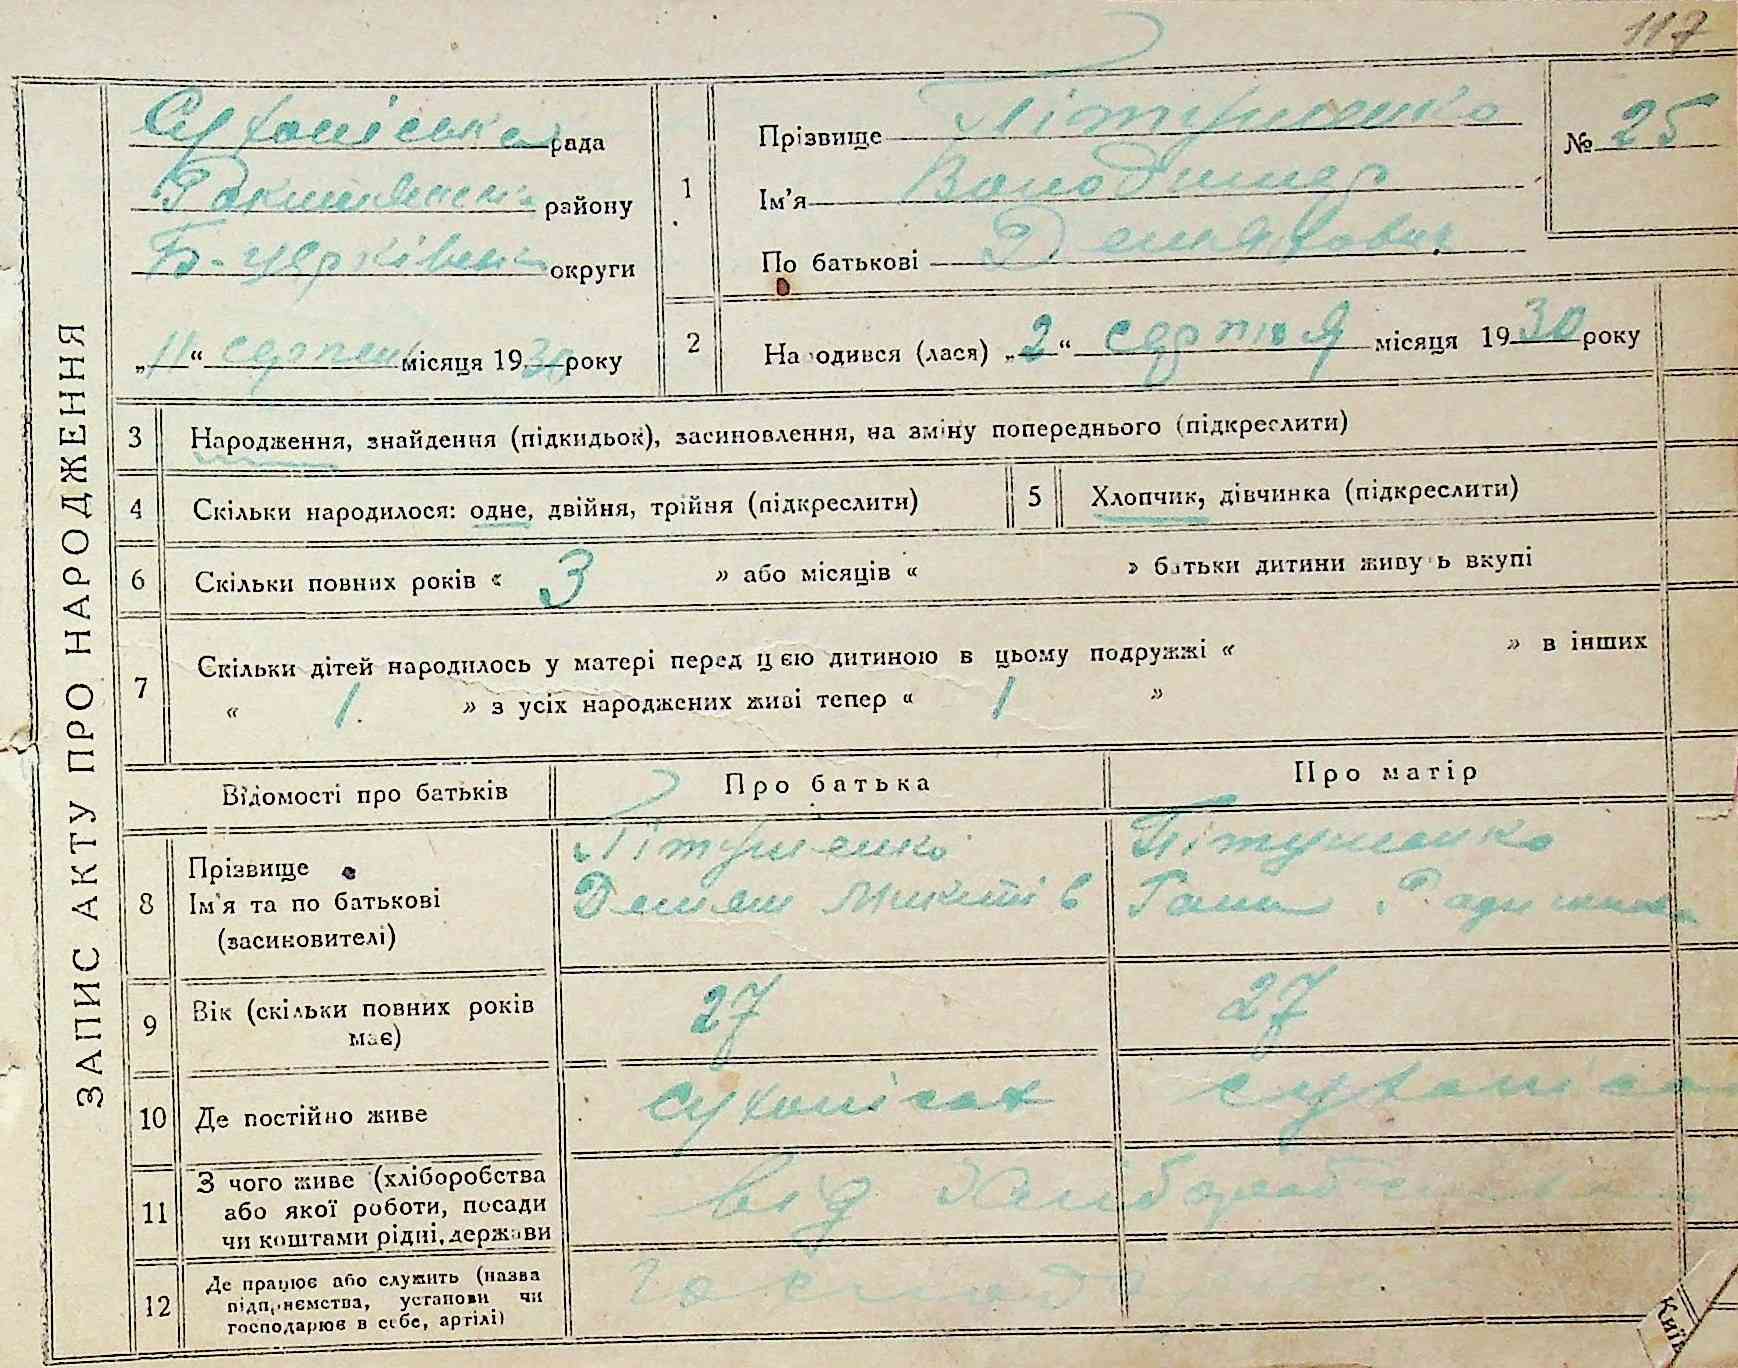 117
ЗАПИС АКТУ ПРО НАРОДЖЕННЯ
Сухоліська рада
Рокитянськ. району
Б-церківськ округи
„11“ серпня місяця 1930 року
1
Прізвище Пітушенко
Ім'я Володимир
По батькові Демянович
№ 25
2
На одився (лася) „2“ серпня місяця 1930 року
3 Народження, знайдення (підкидьок), засиновлення, на зміну попереднього (підкреслити)
4 Скільки народилося: одне, двійня, трійня (підкреслити)
5 Хлопчик, дівчинка (підкреслити)
6 Скільки повних років « 3 » або місяців « » батьки дитини живуть вкупі
7 Скільки дітей народилось у матері перед цією дитиною в цьому подружжі « » в інших
« 1 » з усіх народжених живі тепер « 1 »
Відомості про батьків Про батька Про матір
8 Прізвище Пітушенко Пітушенко
Ім'я та по батькові Демян Микитів Ганна
(засиновителі)
9 Вік (скільки повних років 27 27
має)
10 Де постійно живе Сухолісах Сухоліса
11 З чого живе (хліборобства
або якої роботи, посади від хліборобства
чи коштами рідні, держави
12 Де працює або служить (назва
підприємства, установи чи
господарює в себе, артілі)
Київ